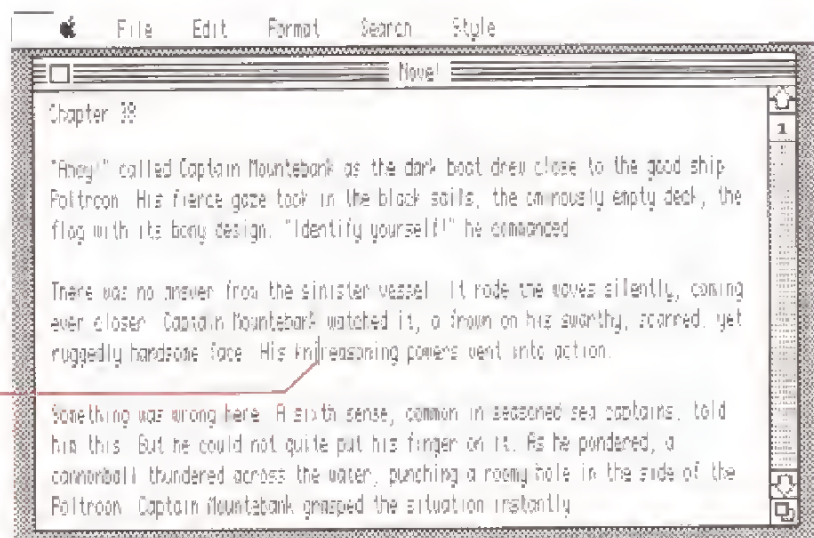 File Edit Format Search Style
Novel
Chapter
1
"Ahoy!" called Captain Mountebank as the dark boat drew close to the good ship
Poltroon. His fierce gaze took in the black sails, the ominously empty deck, the
flag with its bony design. "Identify yourself!" he commanded.
There was no answer from the sinister vessel. It rode the waves silently, coming
ever closer. Captain Mountebank watched it, a frown on his swarthy, scarred, yet
ruggedly handsome face. His kn|reasoning powers went into action.
Something was wrong here. A sixth sense, common in seasoned sea captains, told
him this. But he could not quite put his finger on it. As he pondered, a
cannonball thundered across the water, punching a roomy hole in the side of the
Poltroon. Captain Mountebank grasped the situation instantly.